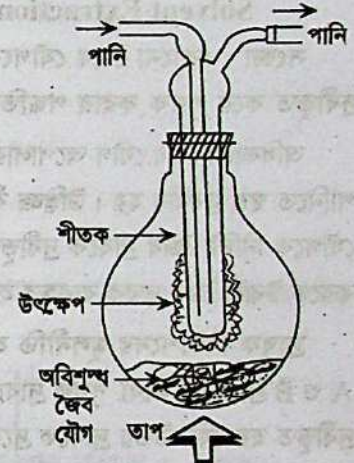 পানি
পানি
শীতক
উৎক্ষেপ
অবিশুদ্ধ
জৈব
যৌগ
তাপ